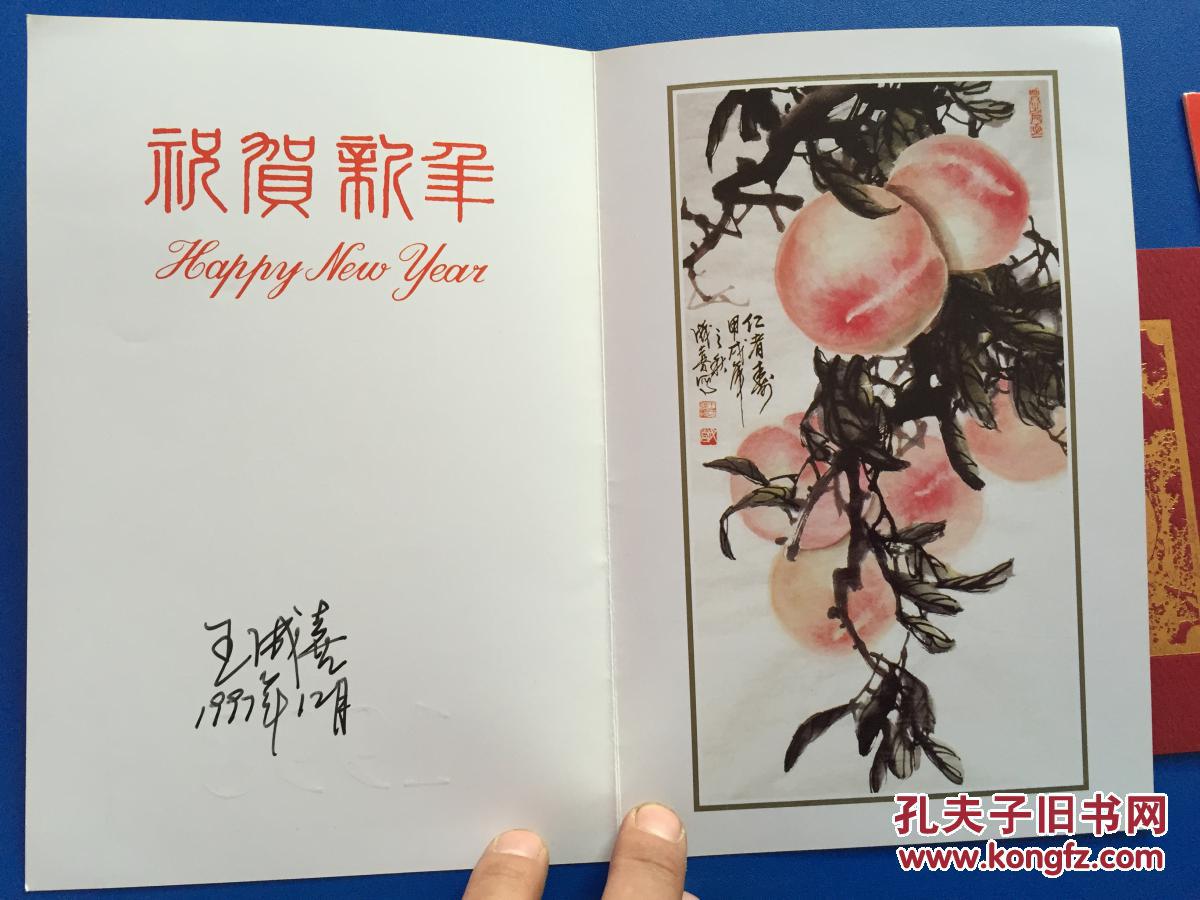 祝賀新年
Happy New Year
王成喜
1997年12月
仁者壽
甲戌年
之秋
成喜寫
孔夫子旧书网
www.kongfz.com